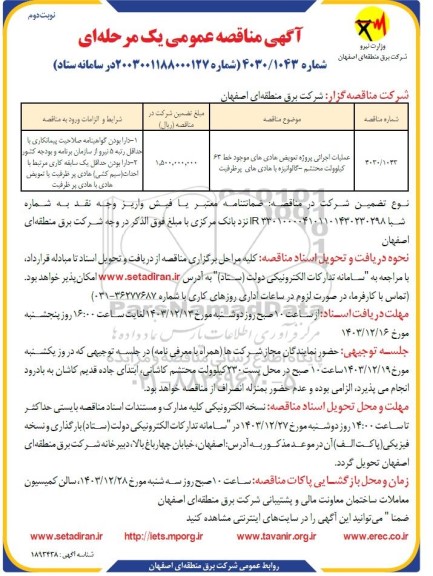 نوبت دوم
آگهی مناقصه عمومی یک مرحله‌ای
شماره ۴۰۳۰/۱۰۴۳ (شماره ۲۰۰۳۰۰۱۱۸۸۰۰۰۱۲۷ در سامانه ستاد)
وزارت نیرو
شرکت برق منطقه‌ای اصفهان
شرکت مناقصه‌گزار: شرکت برق منطقه‌ای اصفهان
شماره مناقصه
موضوع مناقصه
مبلغ تضمین شرکت در مناقصه (ریال)
شرایط و الزامات ورود به مناقصه
۴۰۳۰/۱۰۴۳
عملیات اجرائی پروژه تعویض هادی های موجود خط ۶۳
کیلوولت محتشم -کالوانیزه با هادی های پرظرفیت
۱,۵۰۰,۰۰۰,۰۰۰
۱-دارا بودن گواهینامه صلاحیت پیمانکاری با
حداقل رتبه ۵ نیرو از سازمان برنامه و بودجه کشور
۲-دارا بودن حداقل یک سابقه کاری مرتبط با
احداث(سیم کشی) هادی پر ظرفیت یا تعویض
هادی با هادی پر ظرفیت
نوع تضمین شرکت در مناقصه: ضمانتنامه معتبر یا فیش واریز وجه نقد به شماره
شبا IR ۳۳۰۱۰۰۰۰۴۱۰۱۱۰۱۴۳۰۲۳۰۲۹۸ نزد بانک مرکزی با مبلغ فوق الذکر در وجه شرکت برق منطقه‌ای
اصفهان
نحوه دریافت و تحویل اسناد مناقصه: کلیه مراحل برگزاری مناقصه از دریافت و تحویل اسناد تا مبادله قرارداد،
با مراجعه به "سامانه تدارکات الکترونیکی دولت (ستاد)" به آدرس www.setadiran.ir امکان‌پذیر خواهد بود.
(تماس با کارفرما، در صورت لزوم در ساعات اداری روزهای کاری با شماره ۳۶۲۷۷۶۸۷-۰۳۱)
مهلت دریافت اسناد: از ساعت ۱۰ صبح روز دوشنبه مورخ ۱۴۰۳/۱۲/۱۳ لغایت ساعت ۱۶:۰۰ روز پنجشنبه
مورخ ۱۴۰۳/۱۲/۱۶
جلسه توجیهی: حضور نمایندگان مجاز شرکت ها (همراه با معرفی نامه) در جلسه توجیهی که در روز یکشنبه
مورخ ۱۴۰۳/۱۲/۱۹ ساعت ۱۰ صبح در محل پست ۲۳۰ کیلوولت محتشم کاشانی، ابتدای جاده قدیم کاشان به بادرود
انجام می پذیرد، الزامی بوده و عدم حضور بمنزله انصراف از مناقصه خواهد بود.
مهلت و محل تحویل اسناد مناقصه: نسخه الکترونیکی کلیه مدارک و مستندات اسناد مناقصه بایستی حداکثر
تا ساعت ۱۴:۰۰ روز دوشنبه مورخ ۱۴۰۳/۱۲/۲۷ در "سامانه تدارکات الکترونیکی دولت (ستاد) بارگذاری و نسخه
فیزیکی (پاکت الف) آن در موعد مذکور به آدرس: اصفهان، خیابان چهارباغ بالا، دبیرخانه شرکت برق منطقه‌ای
اصفهان تحویل گردد.
زمان و محل بازگشایی پاکات مناقصه: ساعت ۱۰ صبح روز سه شنبه مورخ ۱۴۰۳/۱۲/۲۸، سالن کمیسیون
معاملات ساختمان معاونت مالی و پشتیبانی شرکت برق منطقه‌ای اصفهان
ضمنا "می‌توانید این آگهی را در سایت‌های اینترنتی مشاهده کنید
www.setadiran.ir http://iets.mporg.ir www.tavanir.org.ir www.erec.co.ir
شناسه آگهی: ۱۸۹۳۴۳۸
روابط عمومی شرکت برق منطقه‌ای اصفهان